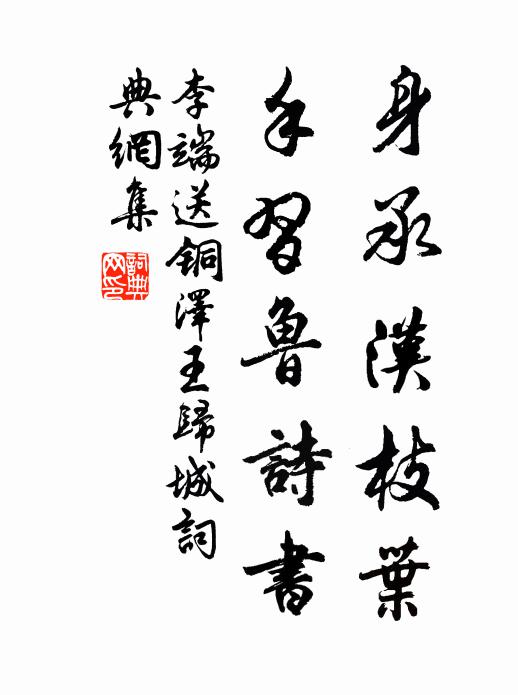 身承漢枝葉
手習魯詩書
李端送銅澤王歸城詞
典網集
詞典网印